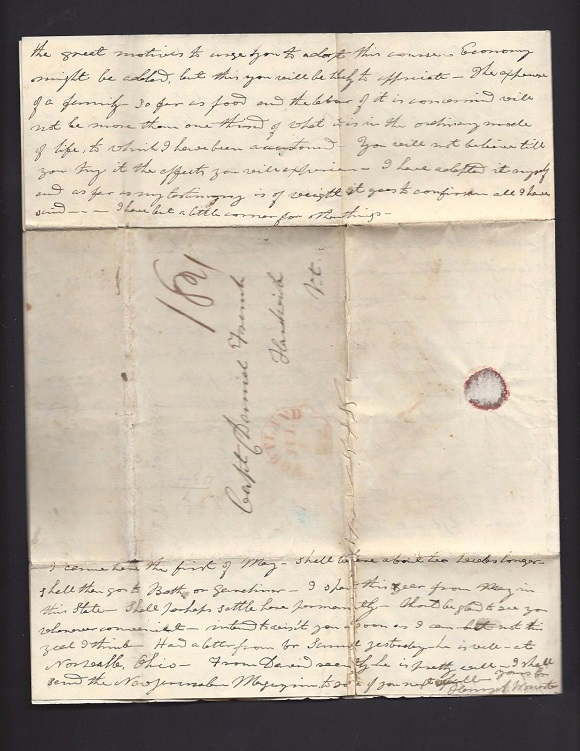 the great motives to urge you to adopt this course Economy
might be added, but this you will be likely to appreciate — The expense
of a family so far as food and the labour of it is concerned will
not be more than one third of what it is in the ordinary mode
of life, to which I have been accustomed — You will not believe till
you try it the effects you will experience — I have adopted it myself
and as far as my testimony is of weight it goes to confirm all I have
said — — I have but a little corner for other things —
Capt Daniel French
Hardwick
Vt.
I came here the first of May — shall be here about two weeks longer
shall then go to Bath or Gardiner — I spend this year from May in
this State — Shall perhaps settle here permanently — Should be glad to see you
whenever convenient — intend to visit you as soon as I can but not this
year I think — Had a letter from br Samuel yesterday he is well — at
Norwalk, Ohio — From David recently he is pretty well — I shall
send the New Jerusalem Magazine to some of you next
yours &c